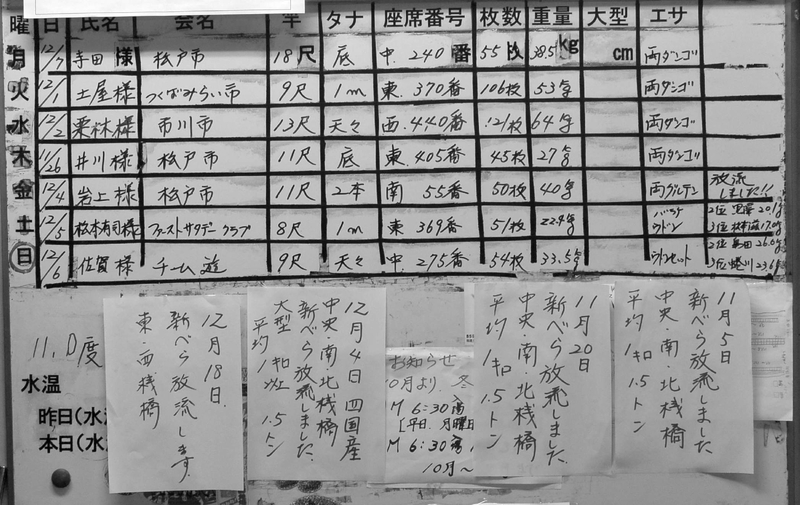 曜 日 氏名 会名 竿 タナ 座席番号 枚数 重量 大型 エサ
月 12/7 寺田様 松戸市 18尺 底 中.240番 55枚 38.5kg cm 両ダンゴ
火 12/1 土屋様 つくばみらい市 9尺 1m 東.370番 106枚 53㌔ 両ダンゴ
水 12/2 栗林様 市川市 13尺 天々 西.440番 121枚 64㌔ 両ダンゴ
木 11/26 井川様 松戸市 11尺 底 東.405番 45枚 27㌔ 両ダンゴ
金 12/4 岩上様 松戸市 11尺 2本 南 55番 50枚 40㌔ 両グルテン 放流
しました!!
土 12/5 松本有司様 ファーストサタデークラブ 8尺 1m 東 369番 51枚 22.9㌔ バラケ
ウドン
2位 20.1㌔
3位 17.0㌔
日 12/6 佐賀様 チーム遊 9尺 天々 中.275番 54枚 33.5㌔ ウドンセット
2位 26.0㌔
3位 蜷川 23.6㌔
11.0度
水温
昨日(水
本日(水
12月18日.
新べら放流します.
東・西桟橋
12月4日 四国産
中央・南・北桟橋
新べら放流しました.
大型
平均 1キロ以上 1.5トン
お知らせ
10月より、冬
M 6:30
[平日.月曜日
M 6:30
10月〜
11月20日
新べら放流しました
中央・南・北桟橋
平均 1キロ 1.5トン
11月5日
新べら放流しました
中央・南・北桟橋
平均 1キロ 1.5トン